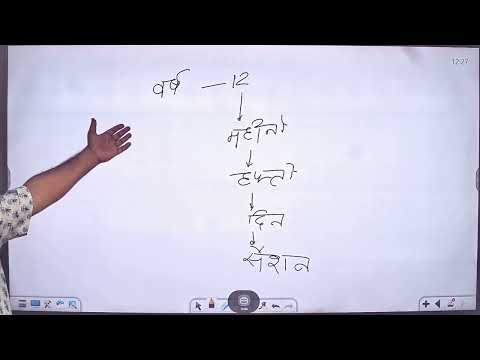 12:27
वर्ष — 12
महीनो
हफ्तो
दिन
सैशन